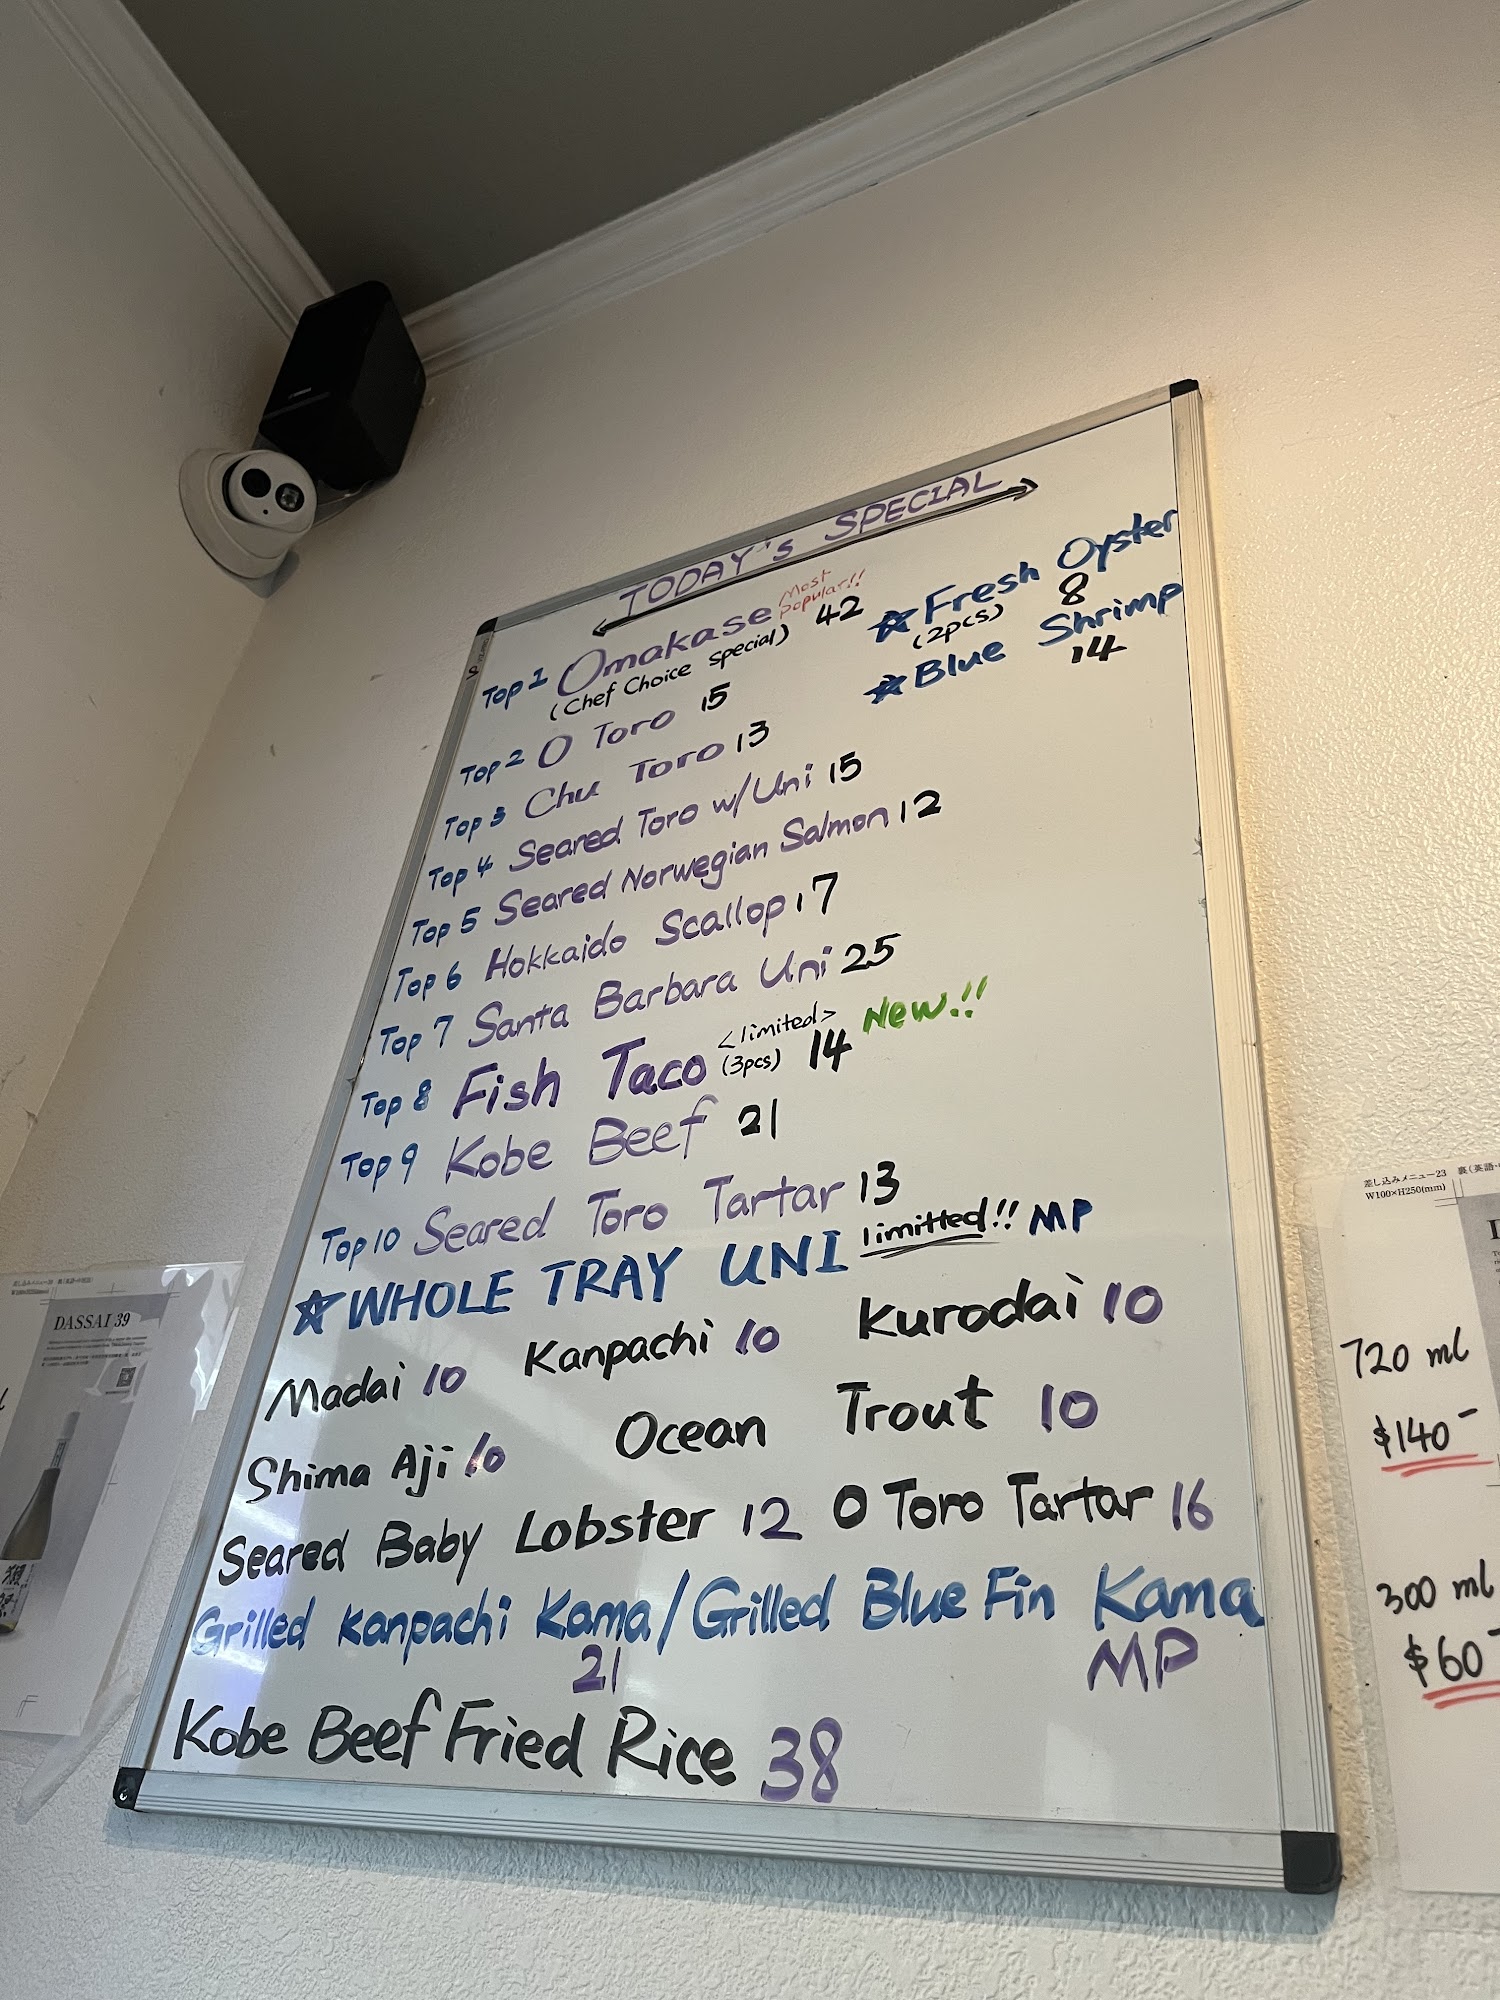 TODAY's SPECIAL
Top 1 Omakase Most popular!! 42
(Chef Choice special)
☆ Fresh Oyster
(2pcs) 8
☆ Blue Shrimp
14
Top 2 O Toro 15
Top 3 Chu Toro 13
Top 4 Seared Toro w/Uni 15
Top 5 Seared Norwegian Salmon 12
Top 6 Hokkaido Scallop 17
Top 7 Santa Barbara Uni 25
Top 8 Fish Taco <limited> (3pcs) 14 New!!
Top 9 Kobe Beef 21
Top 10 Seared Toro Tartar 13
☆ WHOLE TRAY UNI limitted!! MP
Madai 10 Kanpachi 10 Kurodai 10
Shima Aji 10 Ocean Trout 10
Seared Baby Lobster 12 O Toro Tartar 16
Grilled Kanpachi Kama/Grilled Blue Fin Kama
21 MP
Kobe Beef Fried Rice 38
DASSAI 39
差し込みメニュー23 裏(英語
W100×H250(mm)
720 ml
$140-
300 ml
$60-